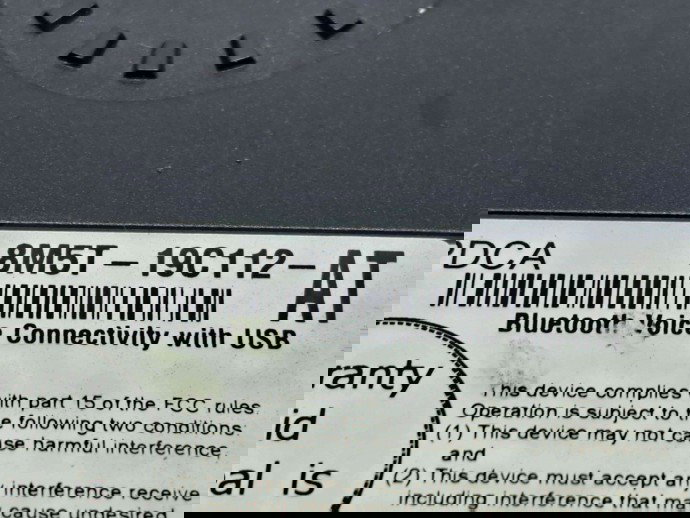 8M5T - 19C112-
AT
Connectivity with USB
ranty
id
al is
with part 15 of the FCC rules.
e following two conditions:
use harmful interference.
y interference received
cause undesired
DCA
Bluetooth Voice
This device complies
Operation is subject to
(1) This device may not
and
(2) This device must accept
including interference that